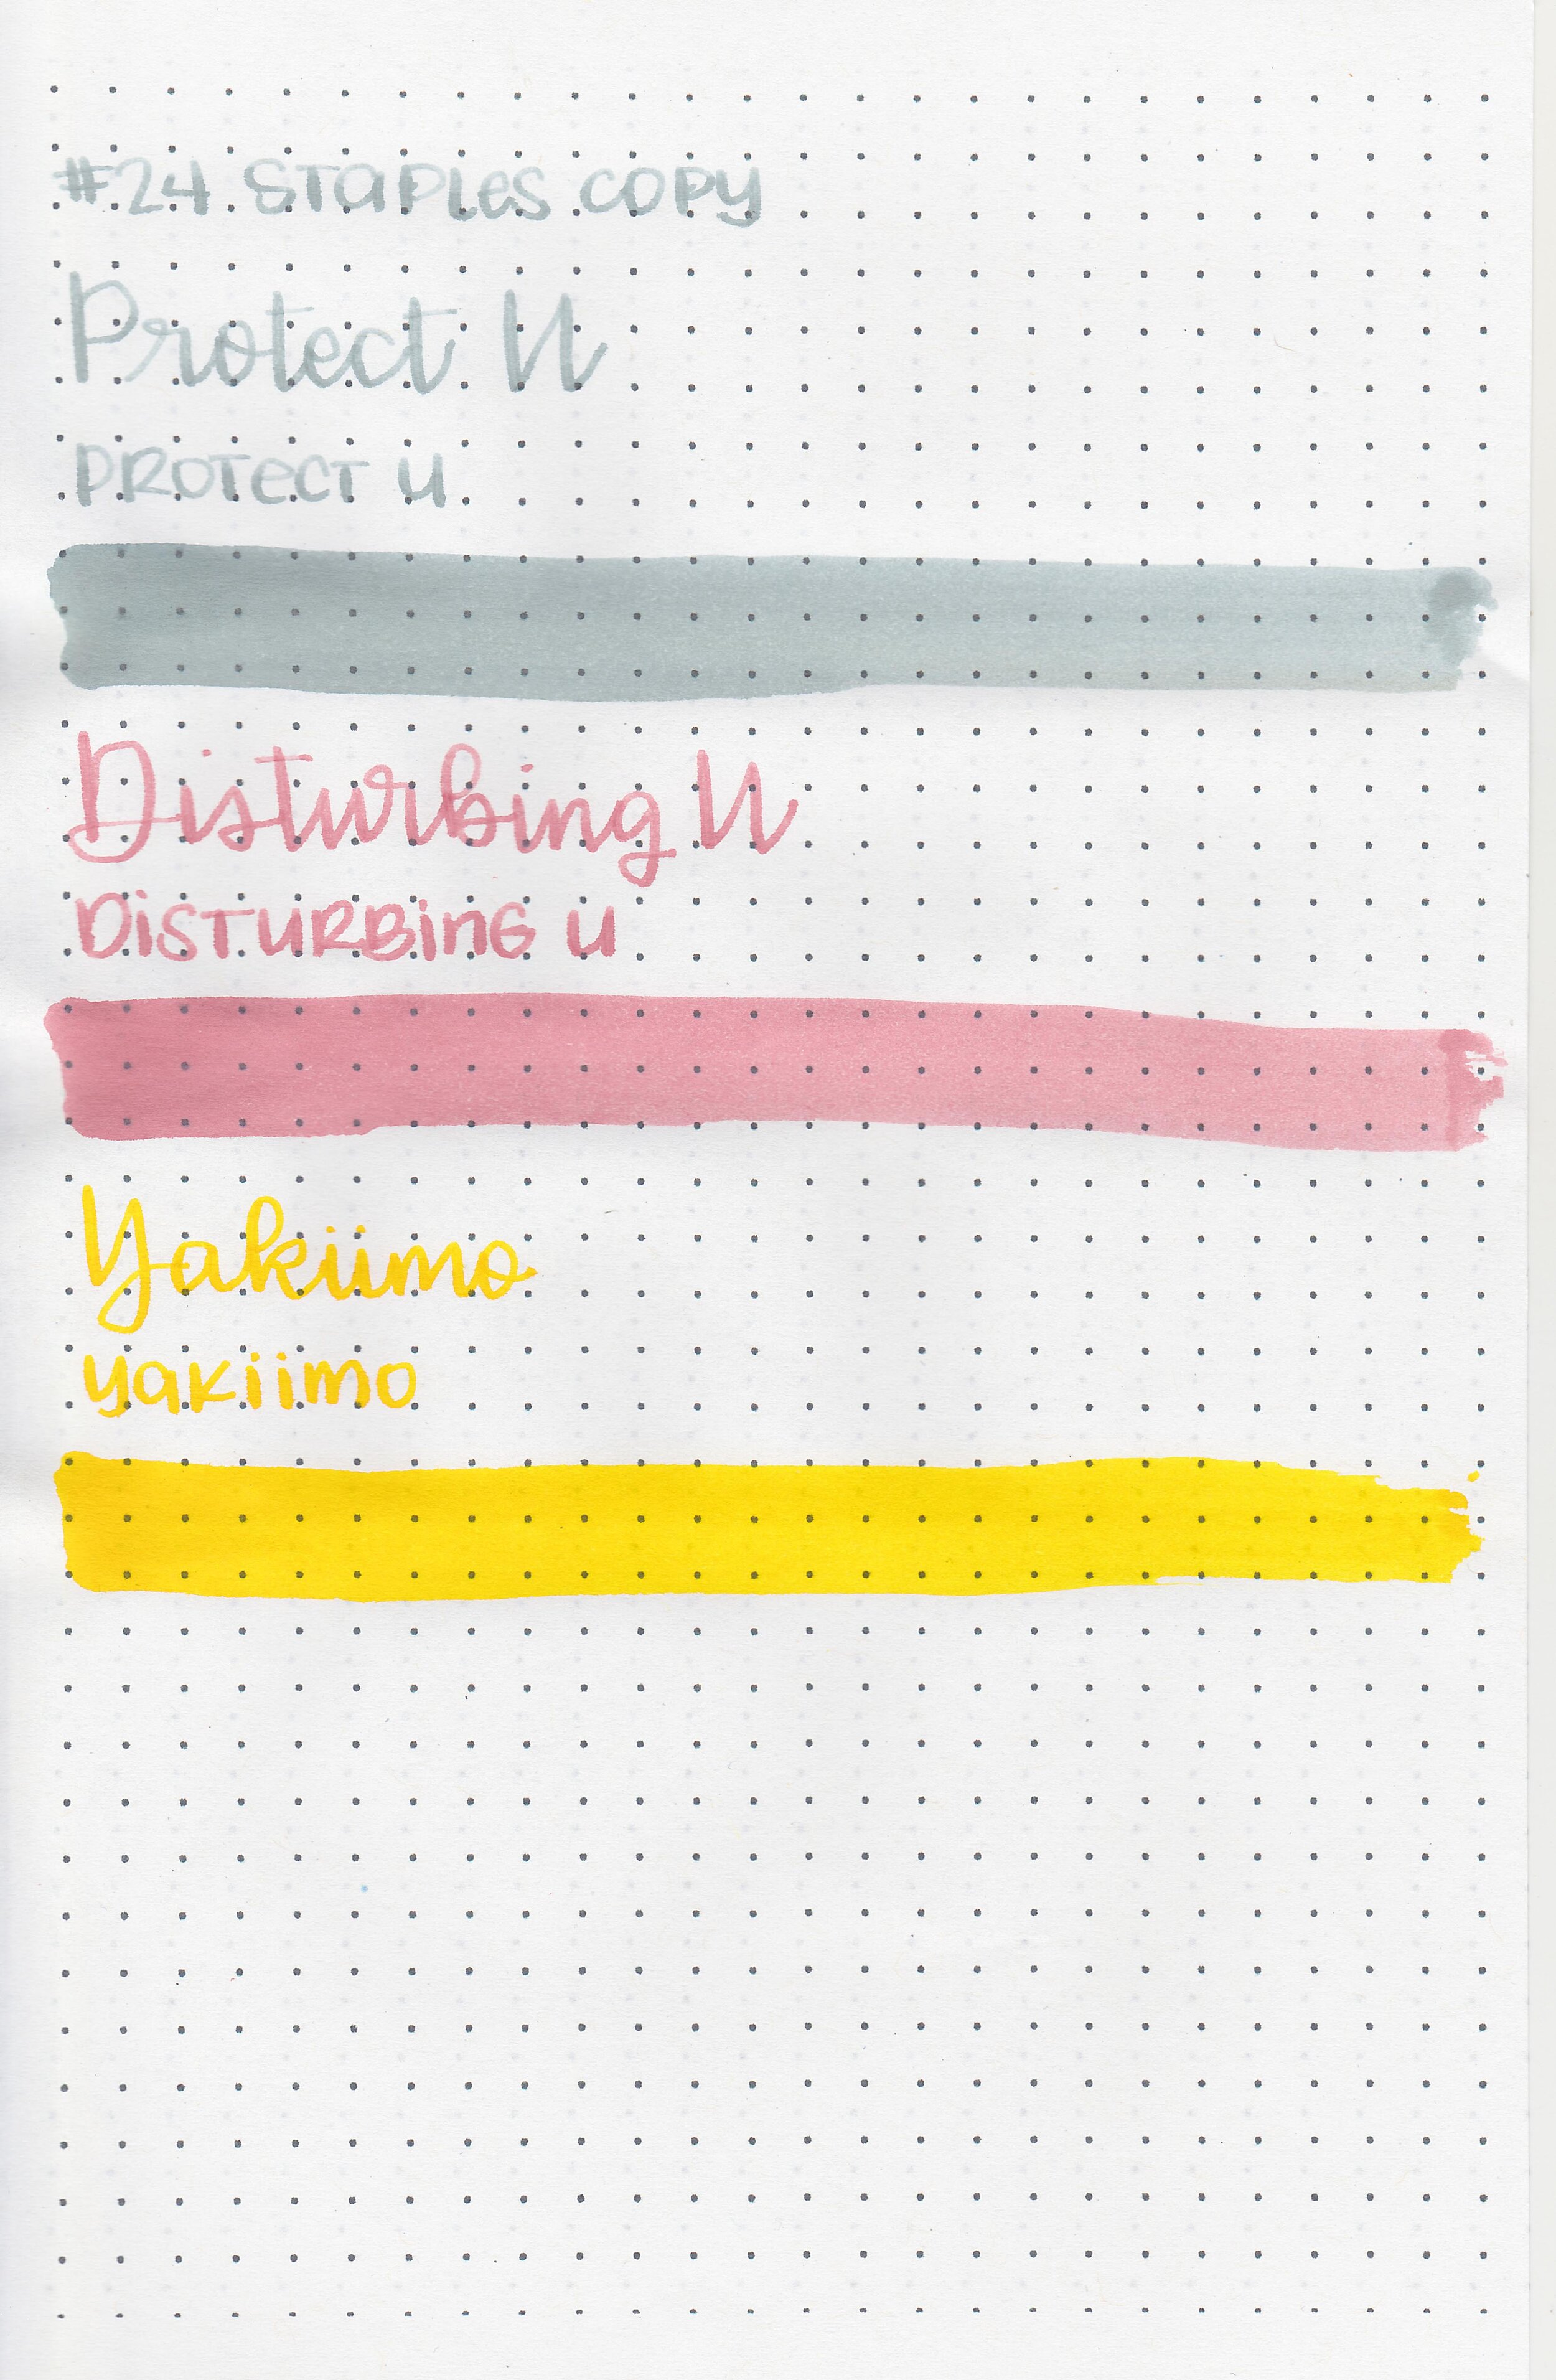 #24 Staples copy
Protect U
Protect U
Disturbing U
Disturbing U
Yakiimo
yakiimo